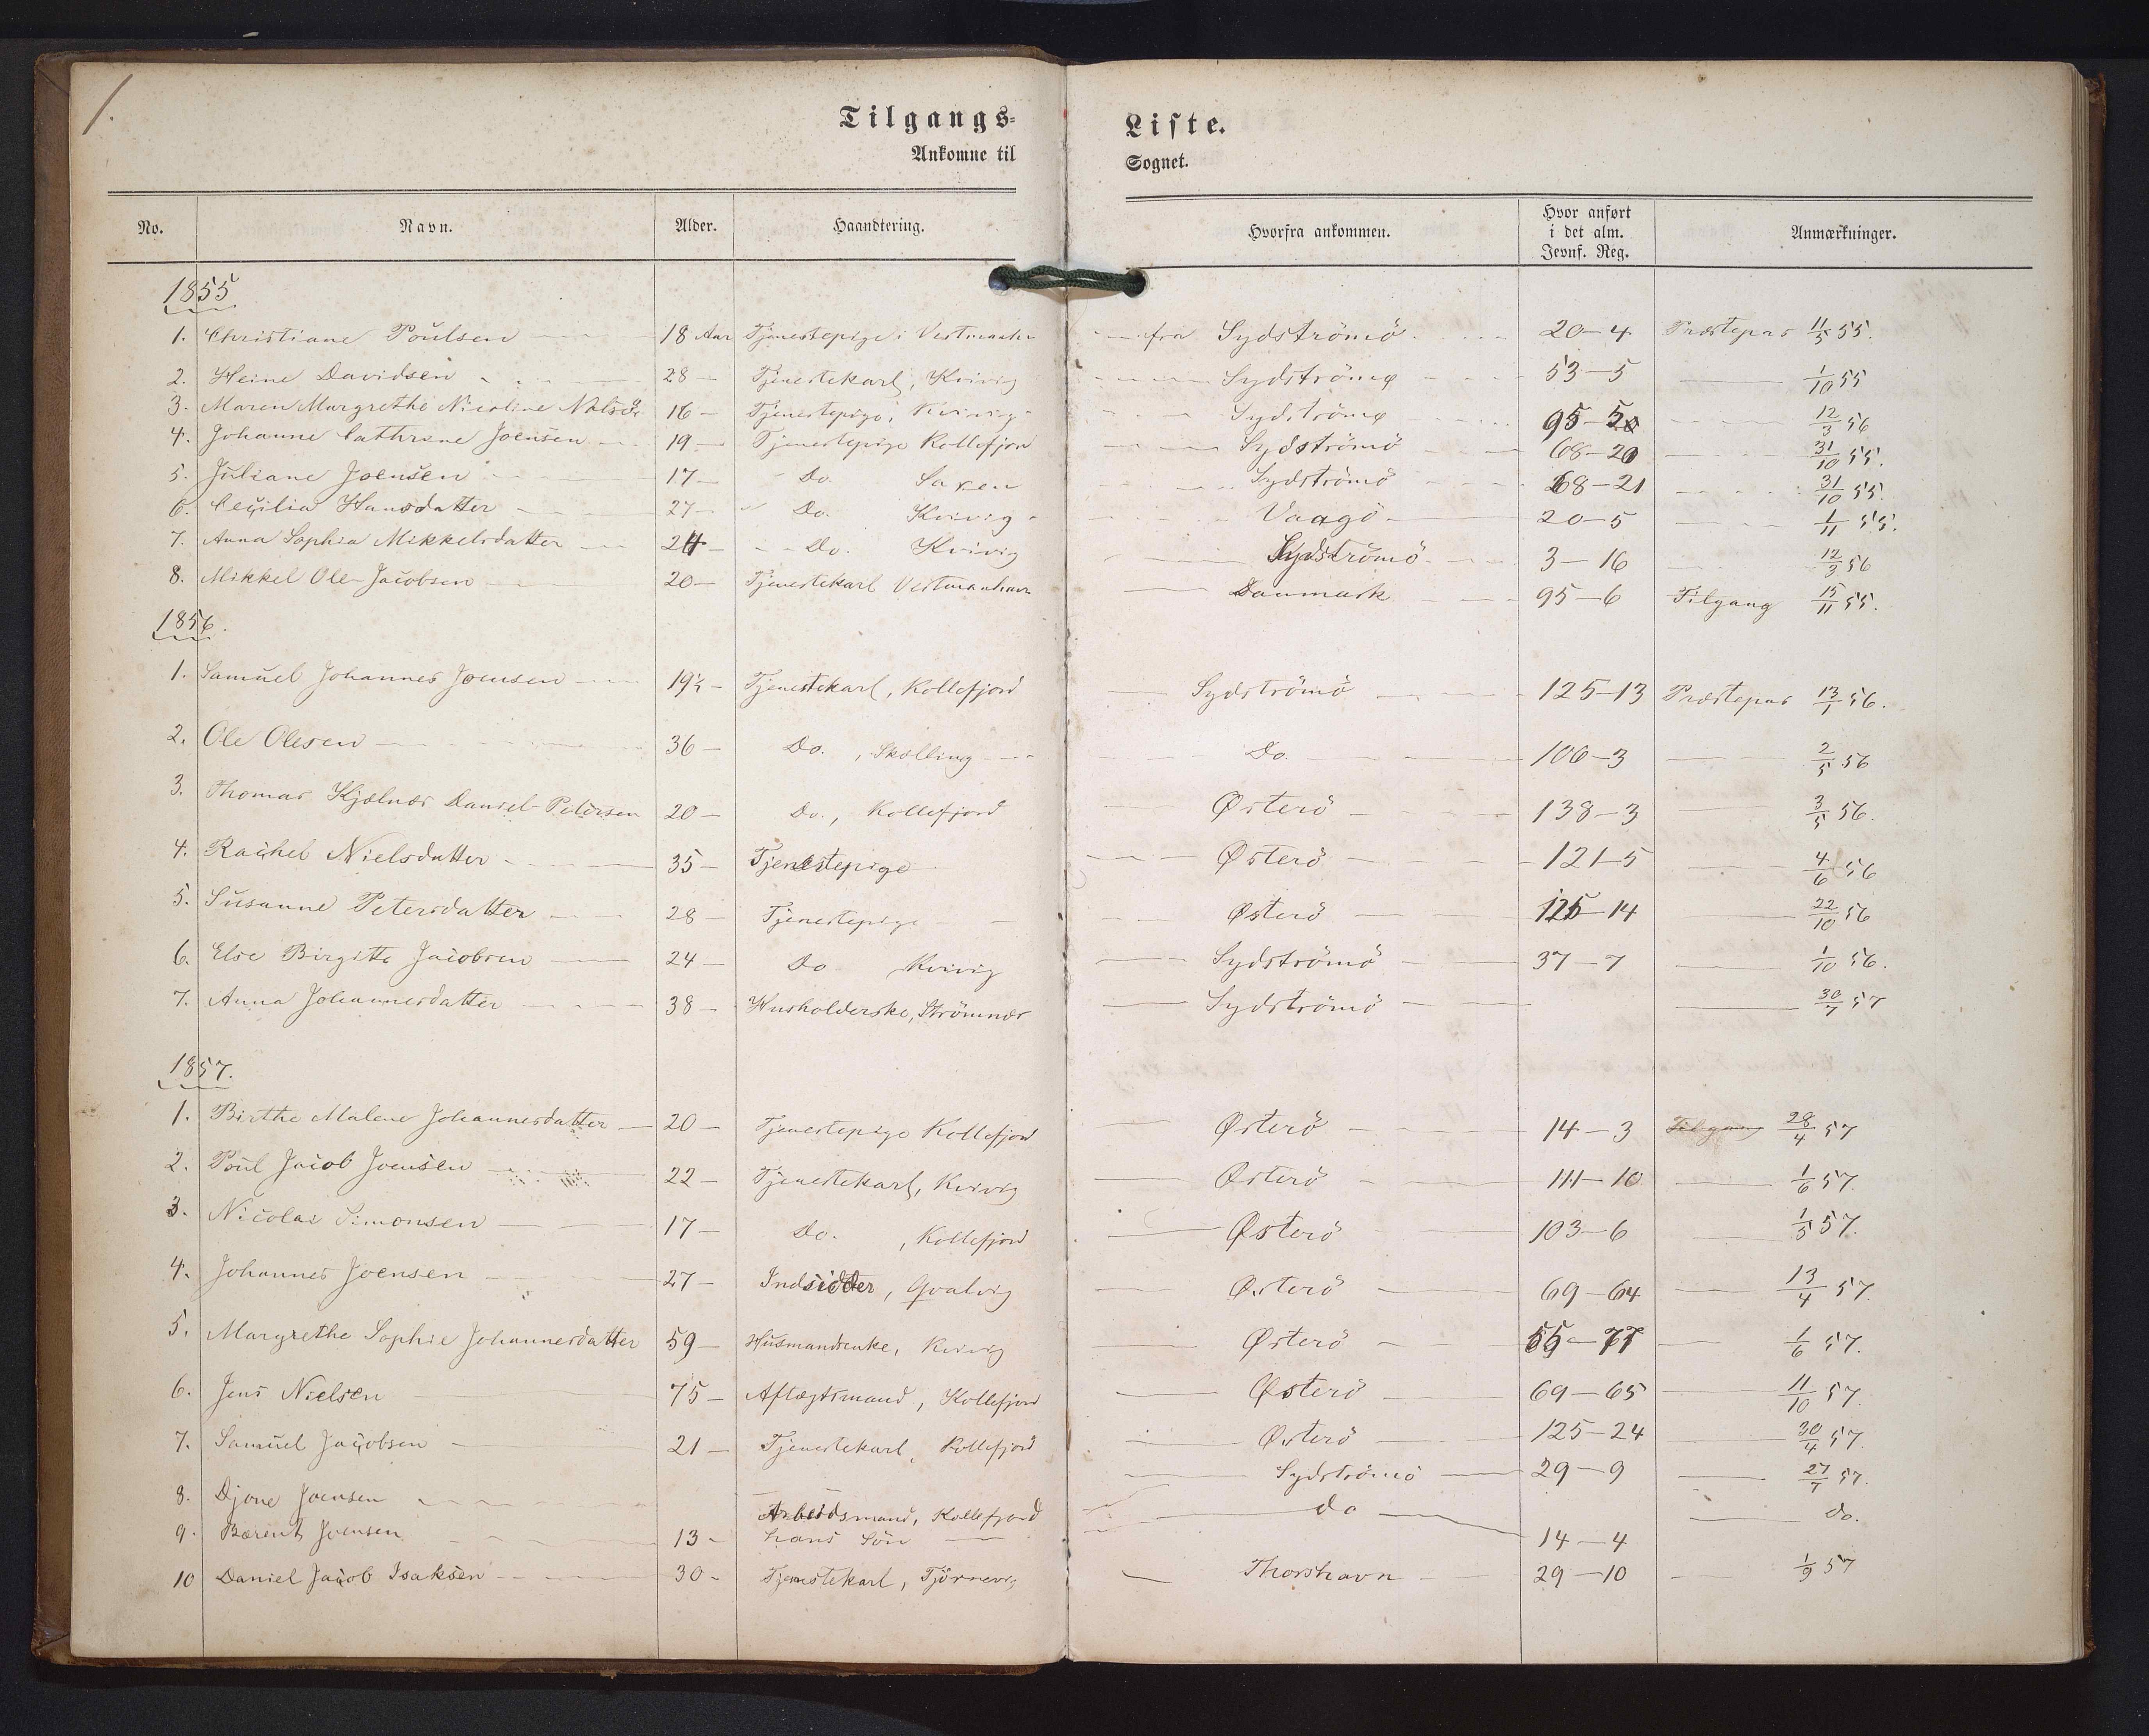 1.
Tilgangs-Liste.
Ankomne til Sognet.
No. Navn. Alder. Haandtering. Hvorfra ankommen. Hvor anført i det alm. Jevnf. Reg. Anmærkninger.
1855
1. Christiane Poulsen 18 Aar Tjenestepige i Vestmanh. fra Sydströmö 20-4 Præstepas 11/5 55.
2. Heine Davidsen 28 Tjenestekarl, Kvivig Sydströmø 53-5 1/10 55
3. Maren Margrethe Nicoline Nolsöe 16 Tjenestepige, Kvivig Sydströmø 95-5 12/3 56
4. Johanne Cathrine Joensen 19 Tjenestepige Kollefjord Sydströmö 68-20 31/10 55.
5. Juliane Joensen 17 Do. Saxen Sydströmö 68-21 31/10 55.
6. Cecilia Hansdatter 27 Do. Kvivig Vaagö 20-5 1/11 55.
7. Anna Sophia Mikkelsdatter 24 Do. Kvivig Sydströmö 3-16 12/3 56
8. Mikkel Ole Jacobsen 20 Tjenestekarl Vestmanhavn Danmark 95-6 Tilgang 15/11 55.
1856.
1. Samuel Johannes Joensen 19½ Tjenestekarl, Kollefjord Sydströmö 125-13 Præstepas 13/1 56.
2. Ole Olesen 36 Do., Skælling Do. 106-3 2/5 56
3. Thomas Kjælnæs Daniel Petersen 20 Do., Kollefjord Østerö 138-3 3/5 56.
4. Rachel Nielsdatter 35 Tjenestepige Østerö 121-5 4/6 56
5. Susanne Petersdatter 28 Tjenestepige Østerö 125-14 22/10 56
6. Else Birgitte Jacobsen 24 Do Kvivig Sydströmö 37-7 1/10 56.
7. Anna Johannesdatter 38 Husholderske, Strömnæs Sydströmö 30/7 57
1857.
1. Birthe Malene Johannesdatter 20 Tjenestepige Kollefjord Østerö 14-3 Tilgang 28/4 57
2. Poul Jacob Joensen 22 Tjenestekarl, Kvivig Østerö 111-10 1/6 57.
3. Nicolai Simonsen 17 Do., Kollefjord Østerö 103-6 1/5 57.
4. Johannes Joensen 27 Indsidder, Qvalvig Østerö 69-64 13/4 57.
5. Margrethe Sophie Johannesdatter 59 Husmandsenke, Kvivig Østerö 55-77 1/6 57.
6. Jens Nielsen 75 Aftægtsmand, Kollefjord Østerö 69-65 11/10 57.
7. Samuel Jacobsen 21 Tjenestekarl, Kollefjord Østerö 125-24 30/4 57.
8. Djone Joensen Arbeidsmand, Kollefjord Sydströmö 29-9 27/7 57.
9. Bærent Joensen 13 hans Sön do 14-4 do.
10 Daniel Jacob Isaksen 30 Tjenestekarl, Tjörnevig Thorshavn 29-10 1/9 57